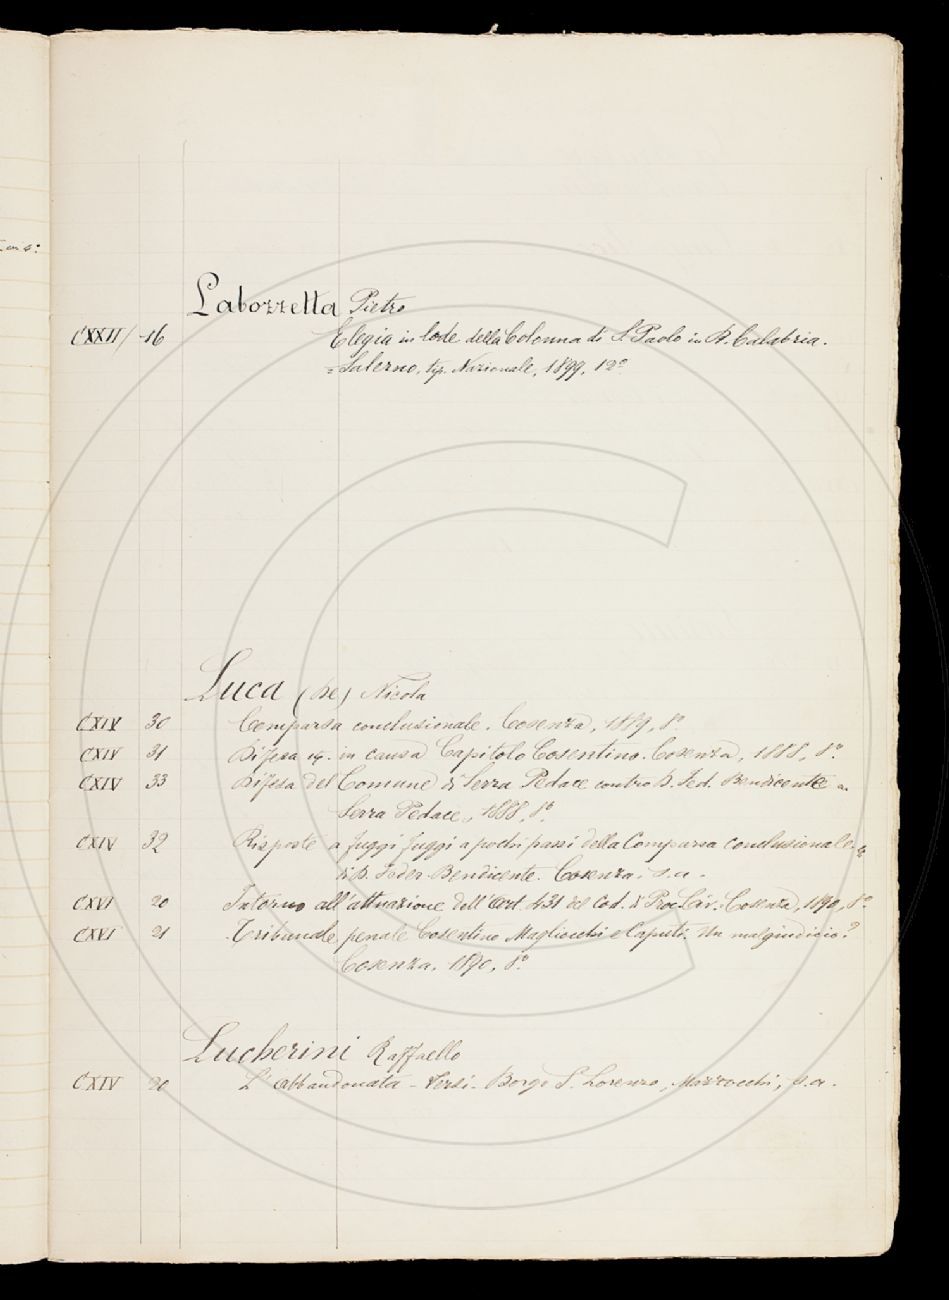 Labozzetta Pietro
CXXII / 16 Elegia in lode della Colonna di S. Paolo in R. Calabria.
=Salerno, tip. Nazionale, 1899, 12º
Luca (De) Nicola
CXIV 30 Comparsa conclusionale. Cosenza, 1889, 8º
CXIV 31 Difesa in causa Capitolo Cosentino. Cosenza, 1888, 8º
CXIV 33 Difesa del Comune di Serra Pedace contro D. Fed. Bendicente =
Serra Pedace, 1888, 8º
CXIV 32 Risposte a fuggi fuggi a pochi passi della Comparsa conclusionale
di D. Feder. Bendicente. Cosenza, s.a.
CXVI 20 Intorno all'attuazione dell'Art. 431 del Cod. di Proc. Civ. Cosenza, 1890, 8º
CXVI 21 Tribunale penale Cosentino Magliocchi e Caputi. Un malgiudicio?
Cosenza, 1890, 8º
Lucherini Raffaello
CXIV 20 L'Abbandonata - Versi - Borgo S. Lorenzo, Mazzocchi, s.a.